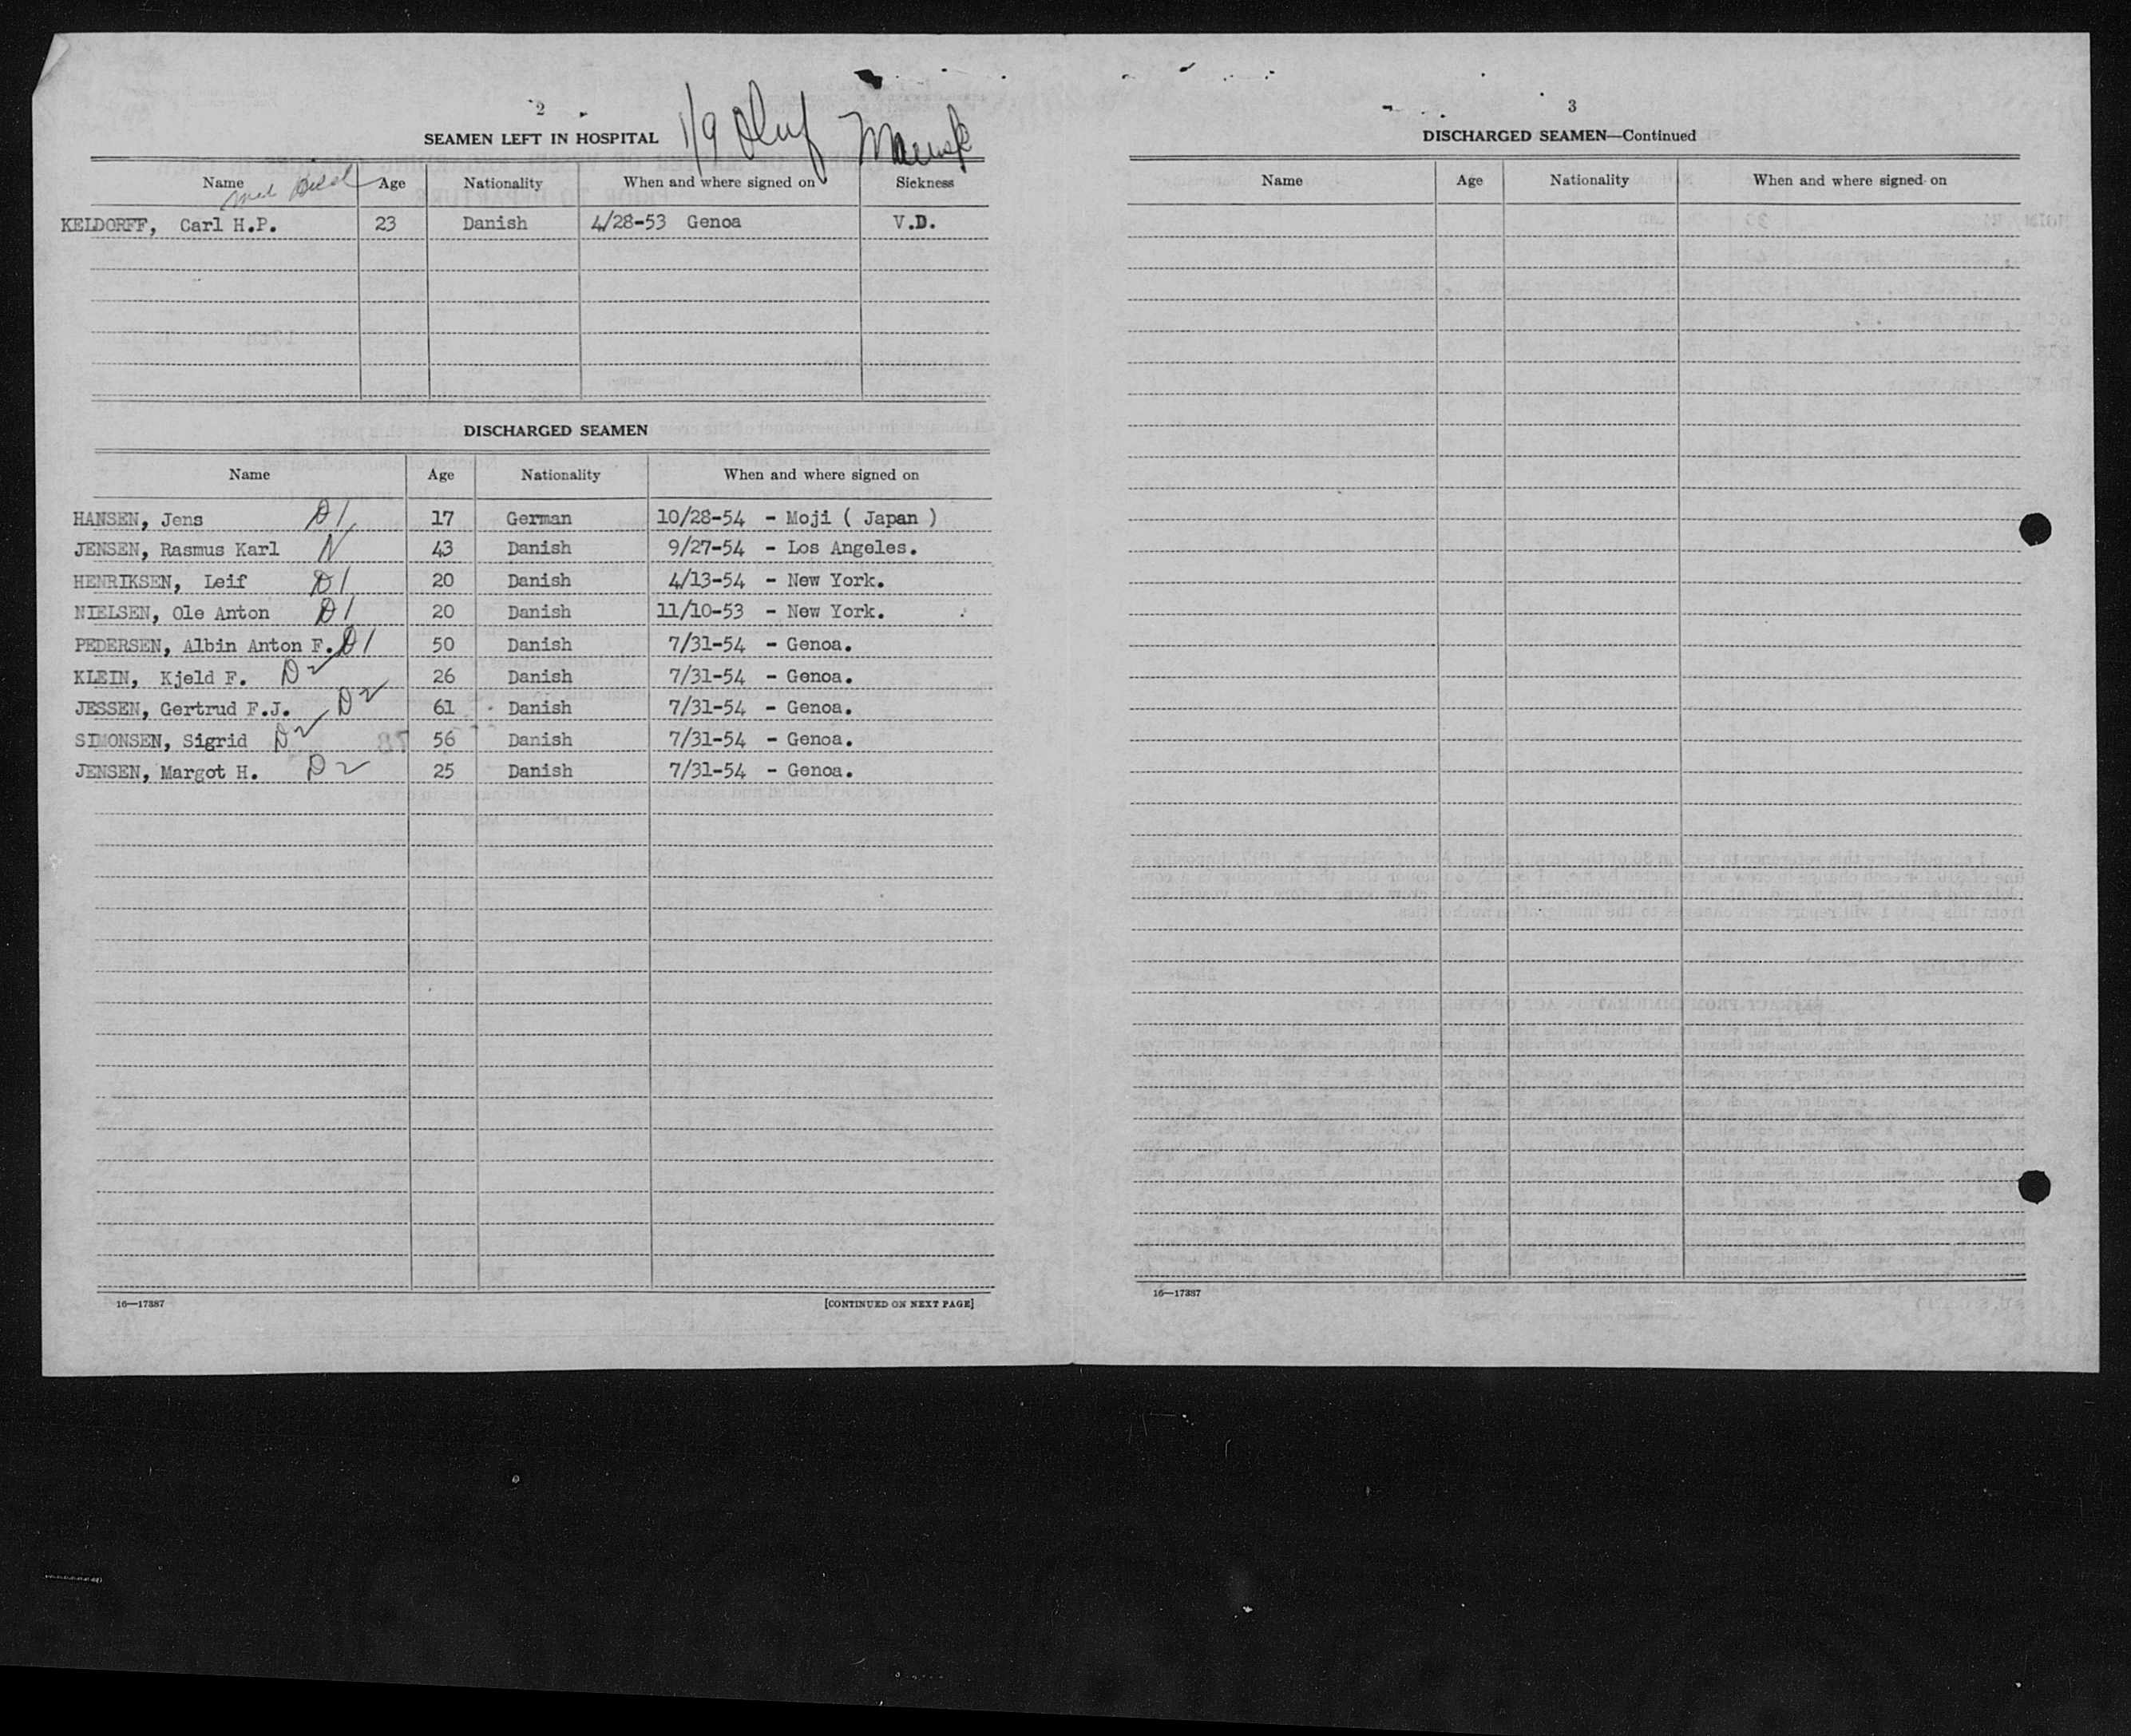 2
SEAMEN LEFT IN HOSPITAL 1/9 Oluf Maersk
Name Age Nationality When and where signed on Sickness
KELDORFF, Carl H.P. 23 Danish 4/28-53 Genoa V.D.
DISCHARGED SEAMEN
Name Age Nationality When and where signed on
HANSEN, Jens D1 17 German 10/28-54 - Moji ( Japan )
JENSEN, Rasmus Karl N 43 Danish 9/27-54 - Los Angeles.
HENRIKSEN, Leif D1 20 Danish 4/13-54 - New York.
NIELSEN, Ole Anton D1 20 Danish 11/10-53 - New York.
PEDERSEN, Albin Anton F. D1 50 Danish 7/31-54 - Genoa.
KLEIN, Kjeld F. D2 26 Danish 7/31-54 - Genoa.
JESSEN, Gertrud F.J. D2 61 Danish 7/31-54 - Genoa.
SIMONSEN, Sigrid D2 56 Danish 7/31-54 - Genoa.
JENSEN, Margot H. D2 25 Danish 7/31-54 - Genoa.
16—17387 [CONTINUED ON NEXT PAGE]
3
DISCHARGED SEAMEN—Continued
Name Age Nationality When and where signed on
16—17387